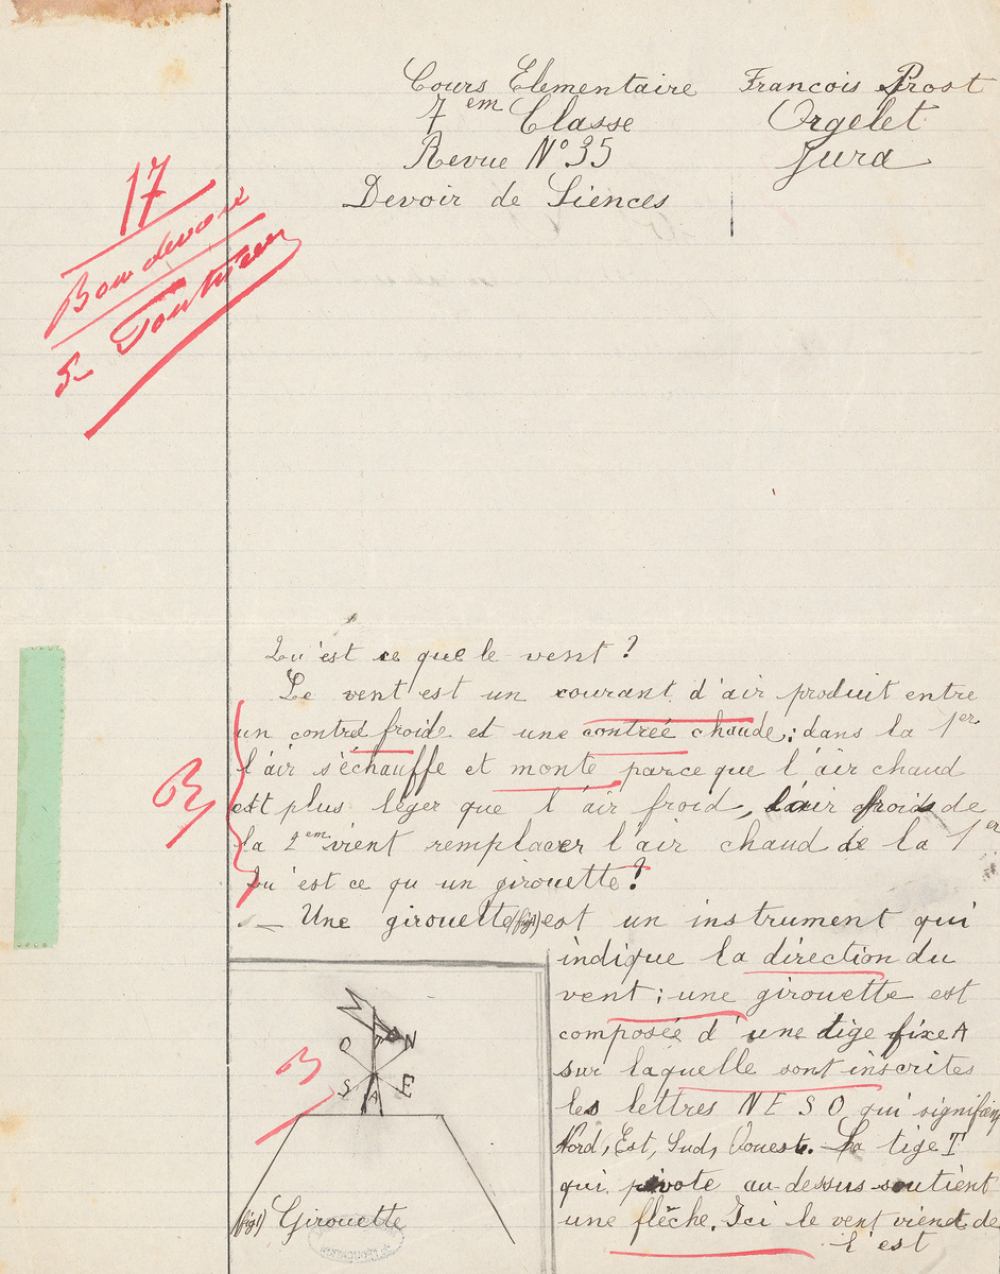 Cours Elementaire François Prost
7em Classe Orgelet
Revue N° 35 Jura
Devoir de Siences
17
Bon devoir
Qu'est ce que le vent ?
Le vent est un courant d'air produit entre
un contré froide et une contrée chaude; dans la 1er
l'air s'échauffe et monte parce que l'air chaud
est plus léger que l'air froid, l'air froid de
la 2em vient remplacer l'air chaud de la 1er
Qu'est ce qu un girouette ?
— Une girouette (fig 1) est un instrument qui
indique la direction du
vent; une girouette est
composée d'une tige fixe A
sur laquelle sont inscrites
les lettres N E S O qui signifient
Nord, Est, Sud, Ouest. La tige T
qui pivote au-dessus soutient
une flèche. Ici le vent vient de
l'est
B
B
O N
S A E
(fig 1) Girouette